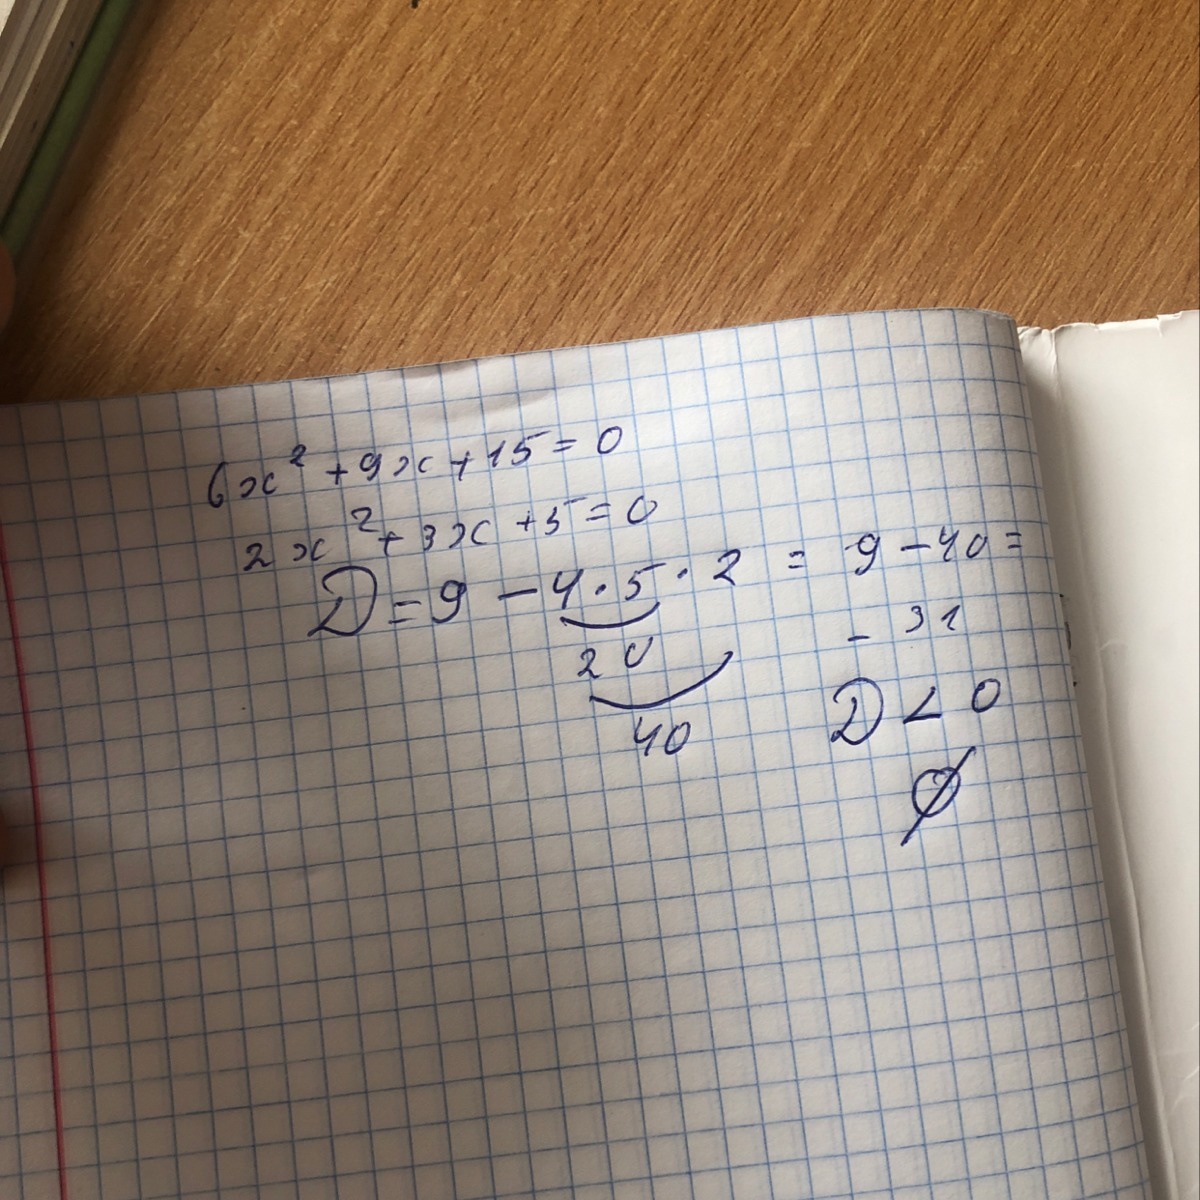 6x² + 9x + 15 = 0
2x² + 3x + 5 = 0
D = 9 - 4 · 5 · 2 = 9 - 40 =
20
40
- 31
D < 0
∅